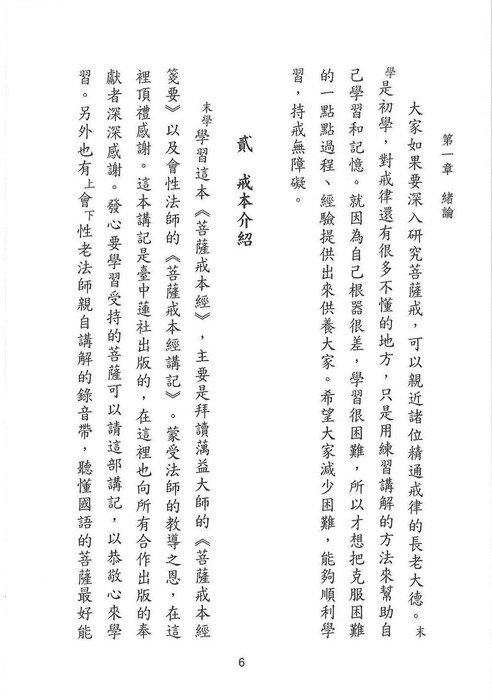 第一章 緒論
大家如果要深入研究菩薩戒，可以親近諸位精通戒律的長老大德。末
學是初學，對戒律還有很多不懂的地方，只是用練習講解的方法來幫助自
己學習和記憶。就因為自己根器很差，學習很困難，所以才想把克服困難
的一點點過程、經驗提供出來供養大家。希望大家減少困難，能夠順利學
習，持戒無障礙。
貳 戒本介紹
末學學習這本《菩薩戒本經》，主要是拜讀蕅益大師的《菩薩戒本經
箋要》以及會性法師的《菩薩戒本經講記》。蒙受法師的教導之恩，在這
裡頂禮感謝。這本講記是臺中蓮社出版的，在這裡也向所有合作出版的奉
獻者深深感謝。發心要學習受持的菩薩可以請這部講記，以恭敬心來學
習。另外也有上會下性老法師親自講解的錄音帶，聽懂國語的菩薩最好能
6